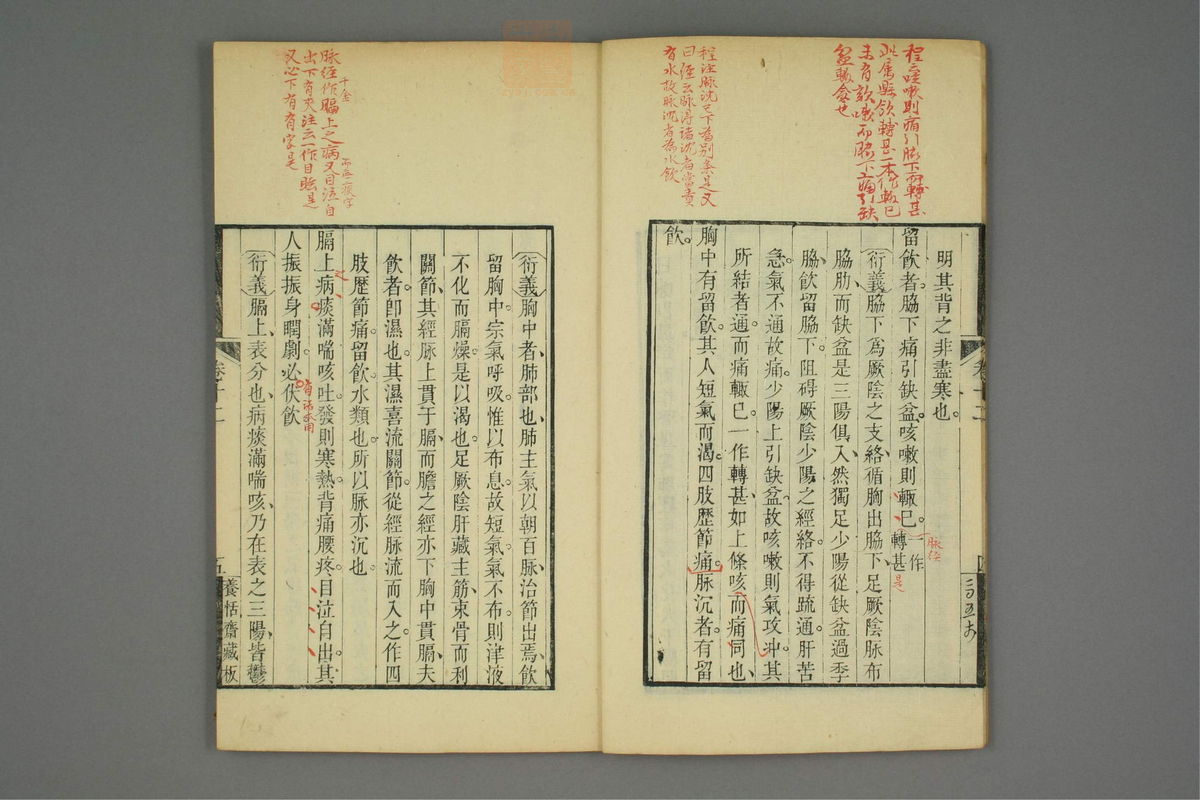 程云咳嗽則痛引脇下而轉甚
此屬懸飲轉甚一本作輒已
未有咳嗽而脇下痛引缺
盆輒愈也
程注脉沉已下爲別條是又
曰經云脉得諸沉者當責
有水故脉沉者爲水飲
明其背之非盡寒也。
留飲者。脇下痛引缺盆。咳嗽則輒已。一作轉甚
脉經
是
(衍義)脇下爲厥陰之支絡循胸出脇下、足厥陰脉布
脇肋、而缺盆是三陽俱入、然獨足少陽從缺盆過季
脇、飲留脇下。阻碍厥陰少陽之經絡。不得疏通肝苦
急。氣不通故痛。少陽上引缺盆。故咳嗽則氣攻沖。其
所結者通。而痛輒已。一作轉甚、如上條咳而痛同也、
胸中有留飲。其人短氣而渴。四肢歷節痛。脈沉者。有留
飲。
卷十二
脉經作膈上之病又目泣自
千金
而無一瘼字
出下有夾注云一作目眩是
又必下有有字是
(衍義)胸中者、肺部也、肺主氣以朝百脉、治節出焉、飲
留胸中。宗氣呼吸。惟以布息。故短氣。氣不布。則津液
不化而膈燥。是以渴也。足厥陰肝藏主筋、束骨而利
關節、其經脉上貫于膈、而膽之經亦下胸中貫膈、夫
飲者。卽濕也。其濕喜流關節。從經脉流而入之。作四
肢歷節痛。留飲水類也。所以脉亦沉也。
膈上病痰滿喘咳吐。發則寒熱背痛腰疼。目泣自出。其
人振振身瞤劇。必伏飲
(衍義)膈上、表分也、病痰滿喘咳、乃在表之三陽、皆鬱
卷十二
五
養恬齋藏板